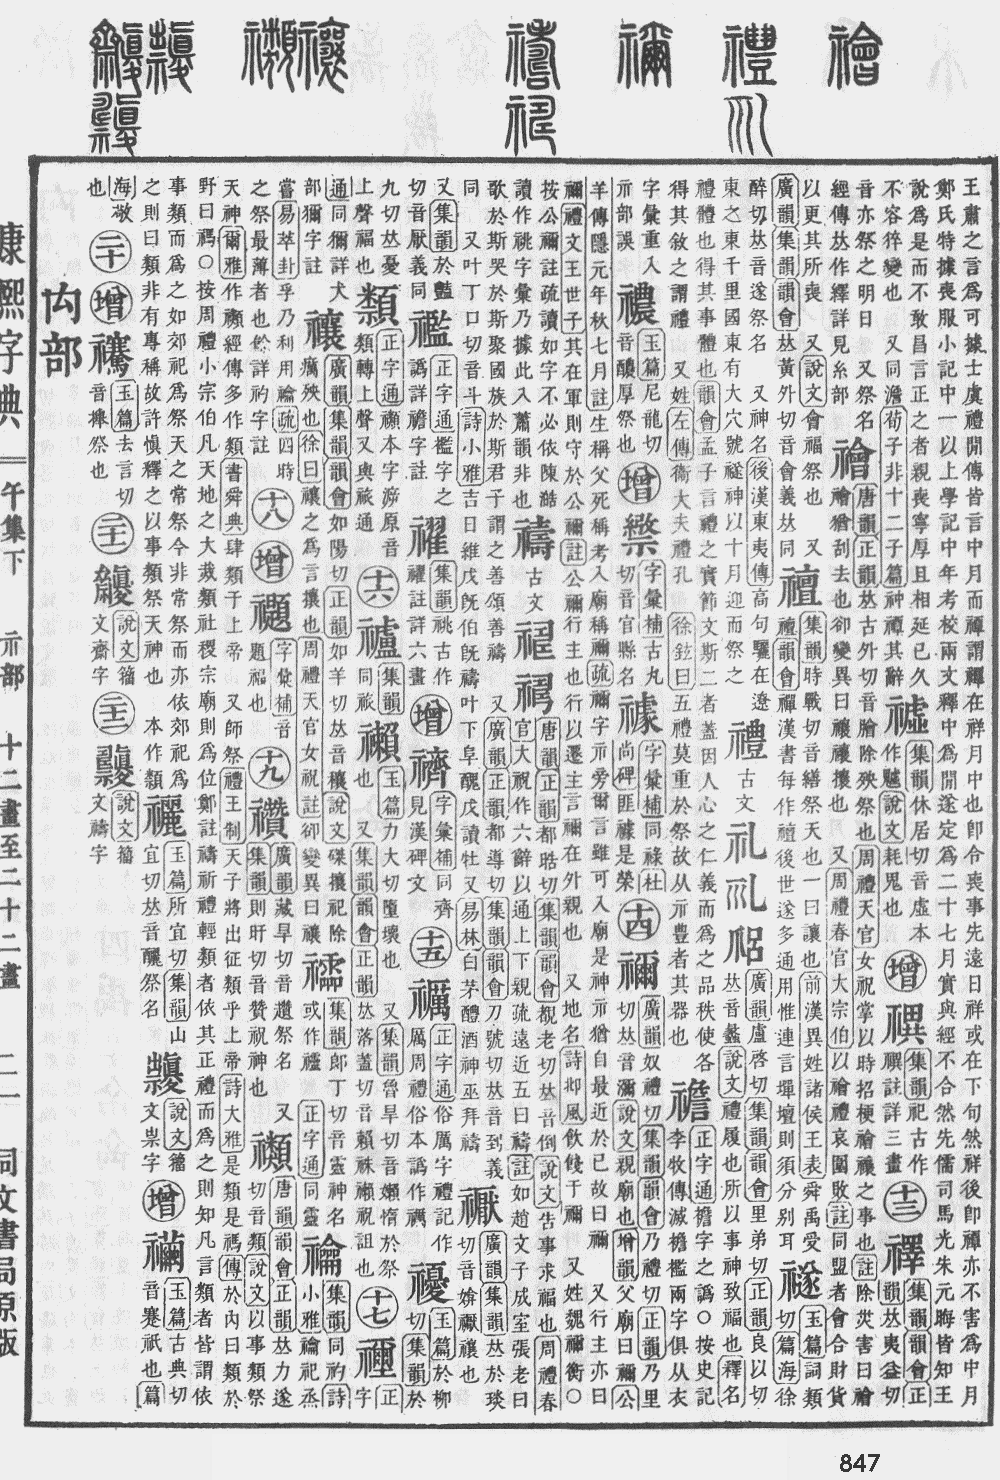 王肅之言爲可據士虞禮閒傳皆言中月而禫謂禫在祥月中也卽令喪事先遠日祥或在下句然祥後卽禫亦不害爲中月
鄭氏特據喪服小記中一以上學記中年考校兩文釋中爲閒遂定爲二十七月實與經不合然先儒司馬光朱元晦皆知王
說爲是而不敢昌言正之者親喪寧厚且相延已久
不容猝變也 又同澹荀子非十二子篇神禫其辭
集韻休居切音虛本
作魖說文耗鬼也
增
集韻祀古作
禩註詳三畫
十三
集韻韻會正
韻𠀤夷益切
音亦祭之明日又祭名
經傳𠀤作繹詳見糸部
禬
唐韻正韻𠀤古外切音膾除殃祭也周禮天官女祝掌以時招梗禬禳之事也註除災害曰禬
禬猶刮去也卻變異曰禳禳攘也 又周禮春官大宗伯以禬禮哀圍敗註同盟者會合財貨
以更其所喪 又說文會福祭也 又
廣韻集韻韻會𠀤黃外切音會義𠀤同
集韻時戰切音繕祭天也一曰讓也前漢異姓諸侯王表舜禹受
韻會禪漢書每作 後世遂多通用惟連言墠壇則須分别耳
禭
玉篇詞類
切篇海徐
醉切𠀤音遂祭名 又神名後漢東夷傳高句驪在遼
東之東千里國東有大穴號禭神以十月迎而祭之
禮
古文
礼
廣韻盧啓切集韻韻會里弟切正韻良以切
𠀤音蠡說文禮履也所以事神致福也釋名
禮體也得其事體也韻會孟子言禮之實節文斯二者蓋因人心之仁義而爲之品秩使各
得其敘之謂禮 又姓左傳衞大夫禮孔 徐鉉曰五禮莫重於祭故从示豊者其器也
正字通襜字之譌○按史記
李牧傳滅襜襤兩字俱从衣
字彙重入
示部誤
禯
玉篇尼龍切
音醲厚祭也
增
字彙補古丸
切音官縣名
字彙補同祿杜
尚碑匪 是榮
十四
禰
廣韻奴禮切集韻韻會乃禮切正韻乃里
切𠀤音瀰說文親廟也增韻父廟曰禰公
羊傳隱元年秋七月註生稱父死稱考入廟稱禰疏禰字示旁爾言雖可入廟是神示猶自最近於已故曰禰 又行主亦曰
禰禮文王世子其在軍則守於公禰註公禰行主也行以遷主言禰在外親也 又地名詩邶風飮餞于禰 又姓魏禰衡○
按公禰註疏讀如字不必依陳澔
讀作祧字彙乃據此入蕭韻非也
禱
古文
唐韻正韻都晧切集韻韻會覩老切𠀤音倒說文告事求福也周禮春
官大祝作六辭以通上下親疏遠近五曰禱註如趙文子成室張老曰
歌於斯哭於斯聚國族於斯君子謂之善頌善禱 又廣韻正韻都導切集韻韻會刀號切𠀤音到義
同 又叶丁口切音斗詩小雅吉日維戊旣伯旣禱叶下阜醜戊讀牡又易林白茅醴酒神巫拜禱
廣韻集韻𠀤於琰
切音媕 禳也
又集韻於豔
切音厭義同
正字通襤字之
譌詳襜字註
集韻祧古作
註詳六畫
增
字彙補同齊
見漢碑文
十五
正字通俗厲字禮記作
厲周禮俗本譌作禲
玉篇於柳
切集韻於
九切𠀤憂
上聲福也
正字通 本字 原音
類轉上聲又與祓通
十六
集韻
同祣
玉篇力大切墮壞也 又集韻魯旱切音嬾惰於祭
也 又集韻韻會正韻𠀤落蓋切音賴祩 祝詛也
十七
正字
通同禰詳
禰字註
禳
廣韻集韻韻會如陽切正韻如羊切𠀤音穰說文磔禳祀除
癘殃也徐曰禳之爲言攘也周禮天官女祝註卻變異曰禳
集韻郞丁切音靈神名
或作 正字通同靈
禴
集韻同礿詩
小雅禴祀烝
嘗易萃卦孚乃利用禴疏四時
之祭最薄者也餘詳礿字註
十八
增
字彙補音
題福也
十九
廣韻藏旱切音趲祭名 又
集韻則旰切音贊祝神也
唐韻韻會正韻𠀤力遂
切音類說文以事類祭
天神爾雅作 經傳多作類書舜典肆類于上帝 又師祭禮王制天子將出征類乎上帝詩大雅是類是禡傳於內曰類於
野曰禡○按周禮小宗伯凡天地之大烖類社稷宗廟則爲位鄭註禱祈禮輕類者依其正禮而爲之則知凡言類者皆謂依
事類而爲之如郊祀爲祭天之常祭今非常祭而亦依郊祀爲
之則曰類非有專稱故許愼釋之以事類祭天神也 本作
玉篇所宜切集韻山
宜切𠀤音釃祭名
說文籀
文祟字
增
玉篇古典切
音蹇祇也篇
海敬
也
二十
增
玉篇去言切
音 祭也
二十一
說文籀
文齋字
二十二
說文籀
文禱字
禸部
康熙字典
午集下 示部 十二畫至二十二畫
二一
同文書局原版
847